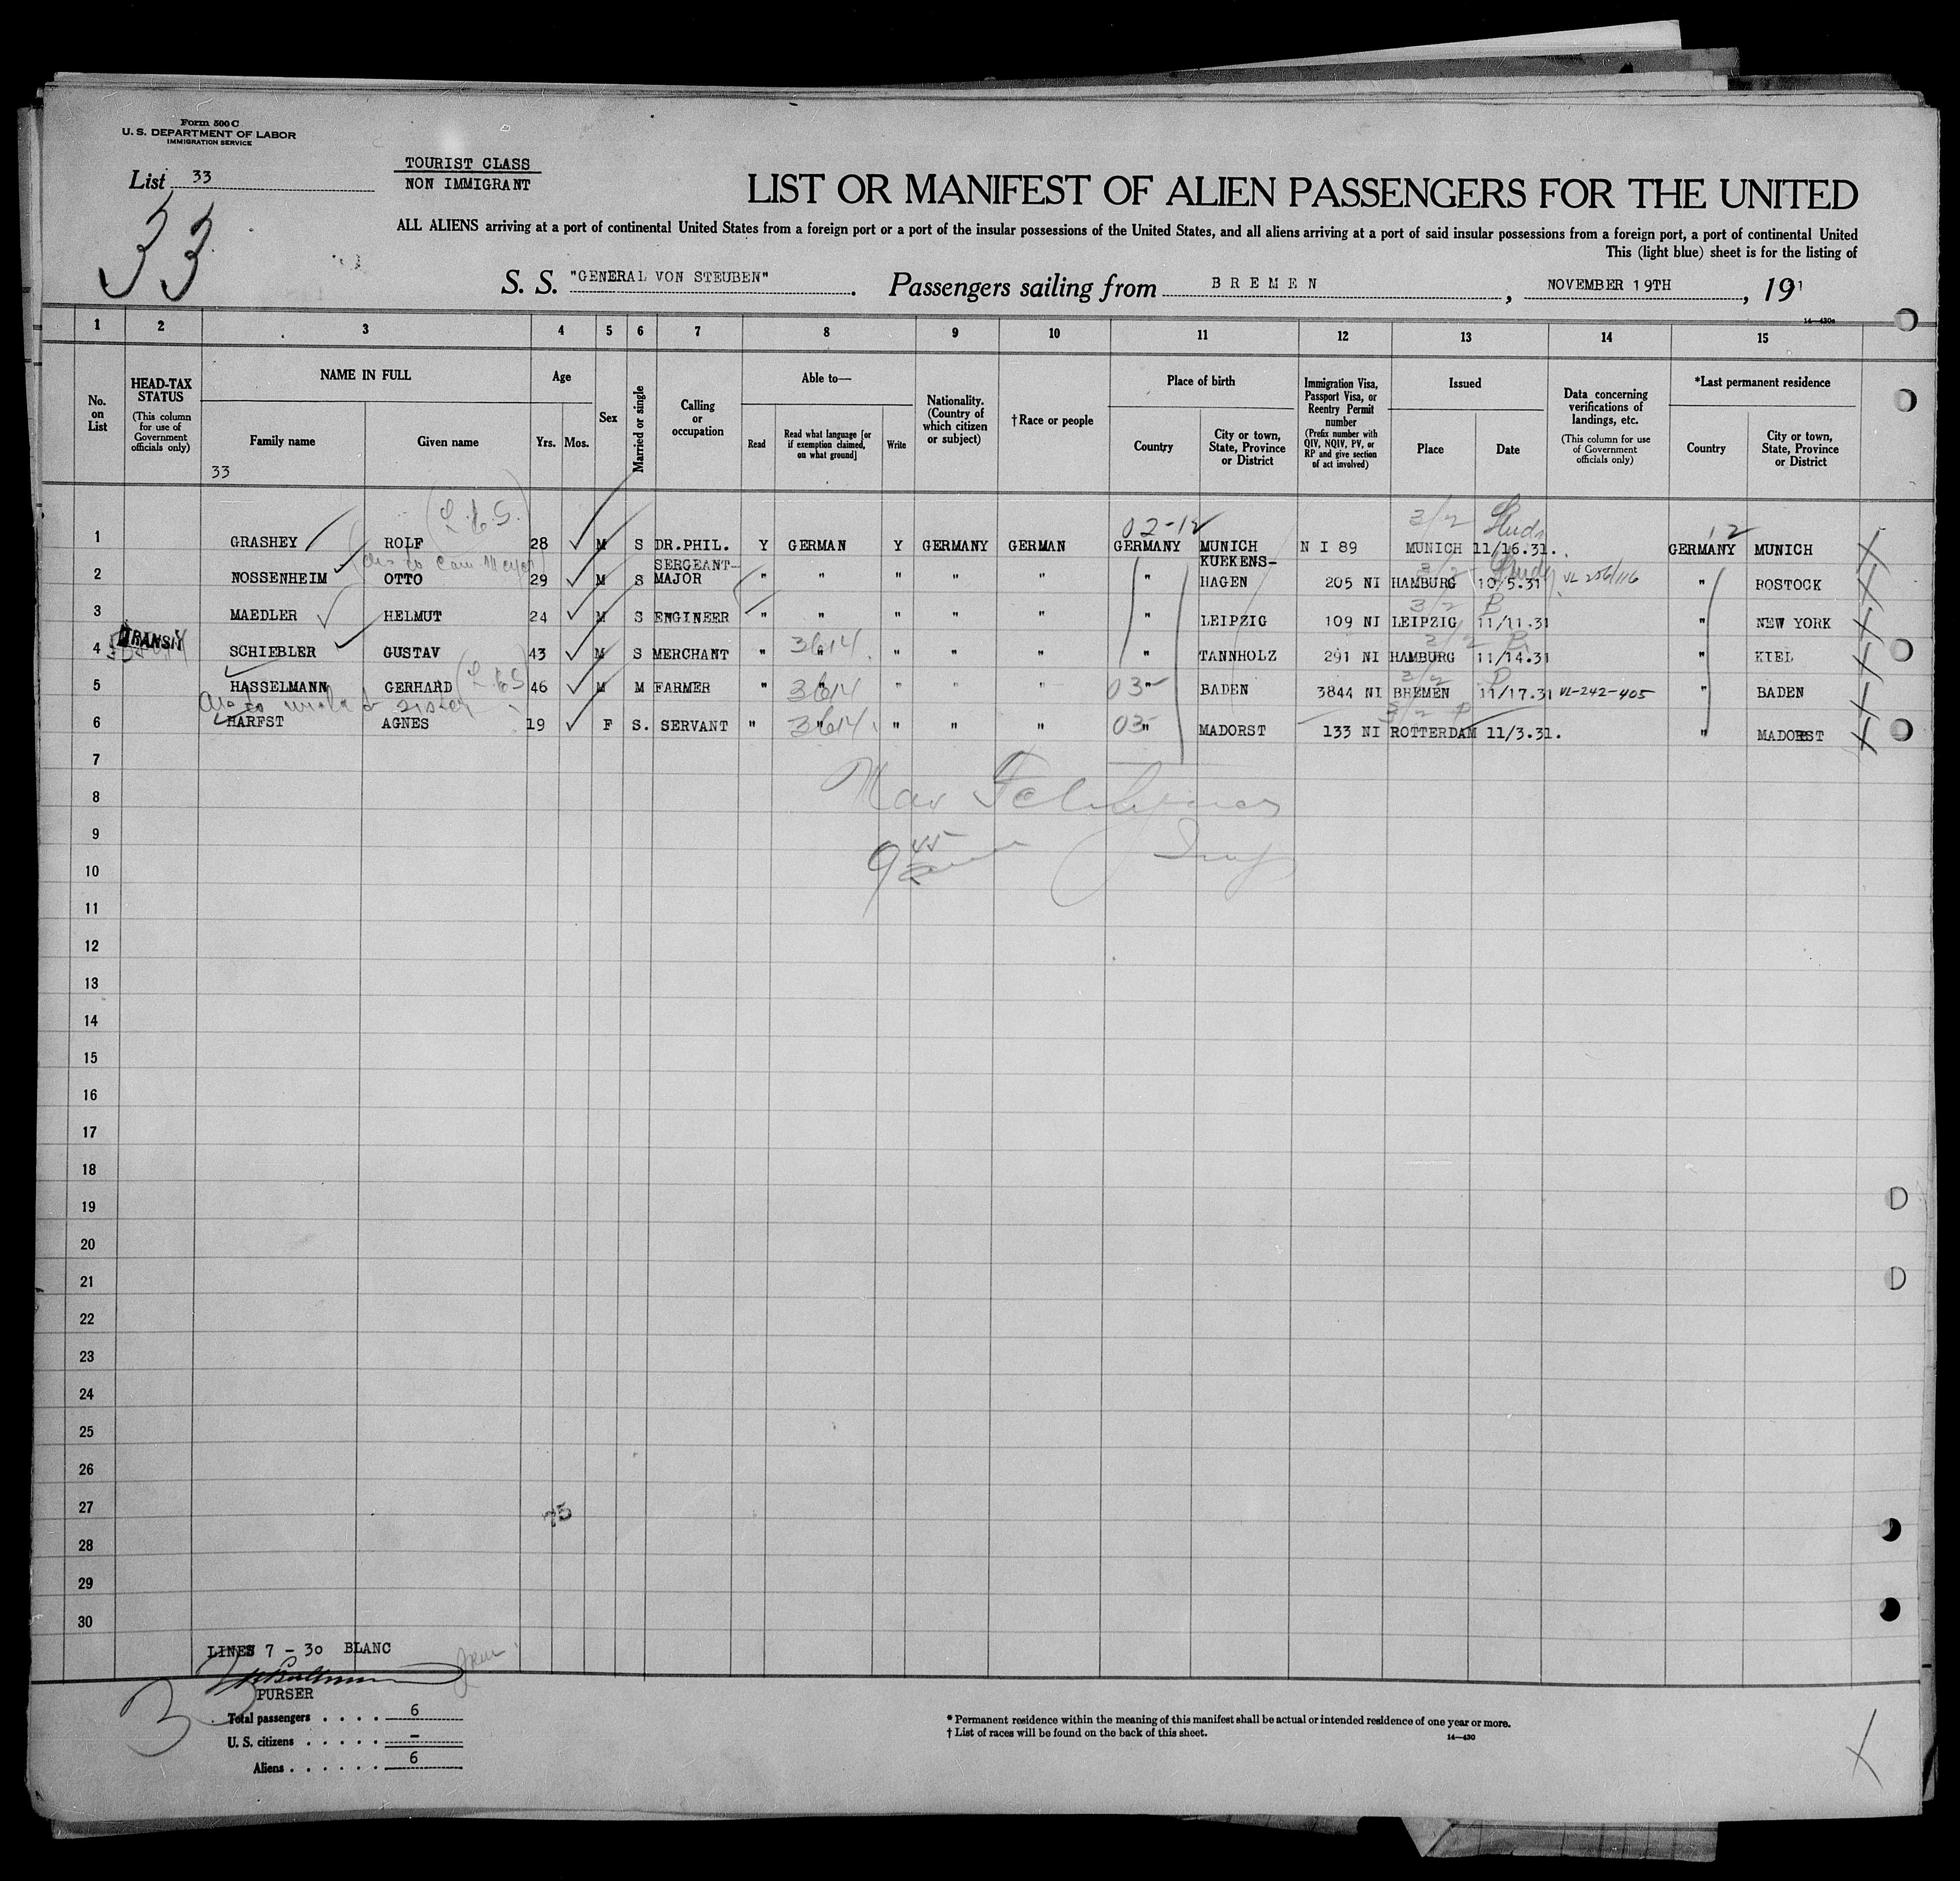 Form 500 C
U. S. DEPARTMENT OF LABOR
IMMIGRATION SERVICE
List 33
TOURIST CLASS
NON IMMIGRANT
33
LIST OR MANIFEST OF ALIEN PASSENGERS FOR THE UNITED
ALL ALIENS arriving at a port of continental United States from a foreign port or a port of the insular possessions of the United States, and all aliens arriving at a port of said insular possessions from a foreign port, a port of continental United
This (light blue) sheet is for the listing of
S. S. "GENERAL VON STEUBEN". Passengers sailing from BREMEN, NOVEMBER 19TH, 19 1
14—430a
1 2 3 4 5 6 7 8 9 10 11 12 13 14 15
No. on List
HEAD-TAX STATUS (This column for use of Government officials only)
NAME IN FULL
Family name Given name
33
Age
Yrs. Mos.
Sex
Married or single
Calling or occupation
Able to—
Read
Read what language [or if exemption claimed, on what ground]
Write
Nationality. (Country of which citizen or subject)
†Race or people
Place of birth
Country
City or town, State, Province or District
Immigration Visa, Passport Visa, or Reentry Permit number (Prefix number with QIV, NQIV, PV, or RP and give section of act involved)
Issued
Place Date
Data concerning verifications of landings, etc. (This column for use of Government officials only)
*Last permanent residence
Country
City or town, State, Province or District
02-12 3/2 12
1 GRASHEY ROLF 28 M S DR.PHIL. Y GERMAN Y GERMANY GERMAN GERMANY MUNICH N I 89 MUNICH 11/16.31. GERMANY MUNICH
2 NOSSENHEIM OTTO 29 M S SERGEANT-MAJOR " " " " " " KUEKENS-HAGEN 205 NI HAMBURG 10/5.31 VL 256/116 " ROSTOCK
3/2 B
3 MAEDLER HELMUT 24 M S ENGINEER " " " " " " LEIPZIG 109 NI LEIPZIG 11/11.31 " NEW YORK
TRANSIT
3/2 B
4 SCHIEBLER GUSTAV 43 M S MERCHANT " 3614 " " " " " TANNHOLZ 291 NI HAMBURG 11/14.31 " KIEL
3/2 P
5 HASSELMANN GERHARD 46 M M FARMER " 3614 " " " " 03 " BADEN 3844 NI BREMEN 11/17.31 VL-242-405 " BADEN
sister
3/2 P
6 HARFST AGNES 19 F S. SERVANT " 3614 " " " " 03 " MADORST 133 NI ROTTERDAM 11/3.31. " MADORST
7
8
9
9 45
10
11
12
13
14
15
16
17
18
19
20
21
22
23
24
25
26
27
75
28
29
30
LINES 7 - 30 BLANC
PURSER
Total passengers . . . . 6
U. S. citizens . . . . . —
Aliens . . . . . . 6
* Permanent residence within the meaning of this manifest shall be actual or intended residence of one year or more.
† List of races will be found on the back of this sheet.
14—430